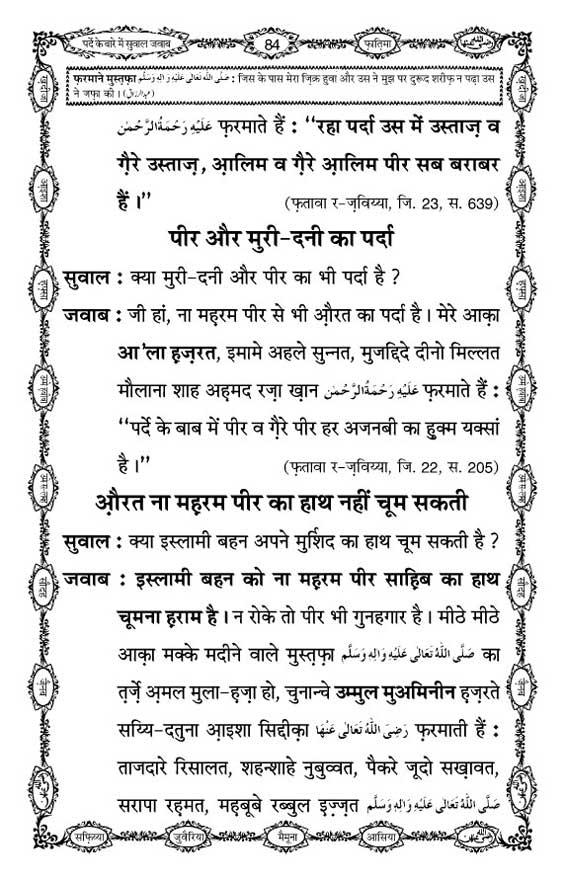 पर्दे के बारे में सुवाल जवाब
84
फ़ातिमा
फ़रमाने मुस्तफ़ा صَلَّى اللهُ تَعَالٰى عَلَيْهِ وَاٰلِهٖ وَسَلَّم : जिस के पास मेरा ज़िक्र हुवा और उस ने मुझ पर दुरूद शरीफ़ न पढ़ा उस
ने जफ़ा की। (عبدالرزاق)
عَلَيْهِ رَحْمَةُ الرَّحْمٰن फ़रमाते हैं : “रहा पर्दा उस में उस्ताज़ व
ग़ैरे उस्ताज़, आ़लिम व ग़ैरे आ़लिम पीर सब बराबर
हैं।” (फ़तावा र-ज़विय्या, जि. 23, स. 639)
पीर और मुरी-दनी का पर्दा
सुवाल : क्या मुरी-दनी और पीर का भी पर्दा है ?
जवाब : जी हां, ना मह़रम पीर से भी औ़रत का पर्दा है। मेरे आक़ा
आ'ला ह़ज़रत, इमामे अहले सुन्नत, मुजद्दिदे दीनो मिल्लत
मौलाना शाह अह़मद रज़ा ख़ान عَلَيْهِ رَحْمَةُ الرَّحْمٰن फ़रमाते हैं :
“पर्दे के बाब में पीर व ग़ैरे पीर हर अजनबी का हुक्म यक्सां
है।” (फ़तावा र-ज़विय्या, जि. 22, स. 205)
औ़रत ना मह़रम पीर का हाथ नहीं चूम सकती
सुवाल : क्या इस्लामी बहन अपने मुर्शिद का हाथ चूम सकती है ?
जवाब : इस्लामी बहन को ना मह़रम पीर साह़िब का हाथ
चूमना ह़राम है। न रोके तो पीर भी गुनहगार है। मीठे मीठे
आक़ा मक्के मदीने वाले मुस्तफ़ा صَلَّى اللهُ تَعَالٰى عَلَيْهِ وَاٰلِهٖ وَسَلَّم का
तर्ज़े अ़मल मुला-ह़ज़ा हो, चुनान्चे उम्मुल मुअमिनीन ह़ज़रते
सय्यि-दतुना आ़इशा सिद्दीक़ा رَضِىَ اللهُ تَعَالٰى عَنْهَا फ़रमाती हैं :
ताजदारे रिसालत, शहन्शाहे नुबुव्वत, पैकरे जूदो सख़ावत,
सरापा रह़मत, मह़बूबे रब्बुल इ़ज़्ज़त صَلَّى اللهُ تَعَالٰى عَلَيْهِ وَاٰلِهٖ وَسَلَّم
सफ़िय्या
जुवैरिया
मैमूना
आसिया